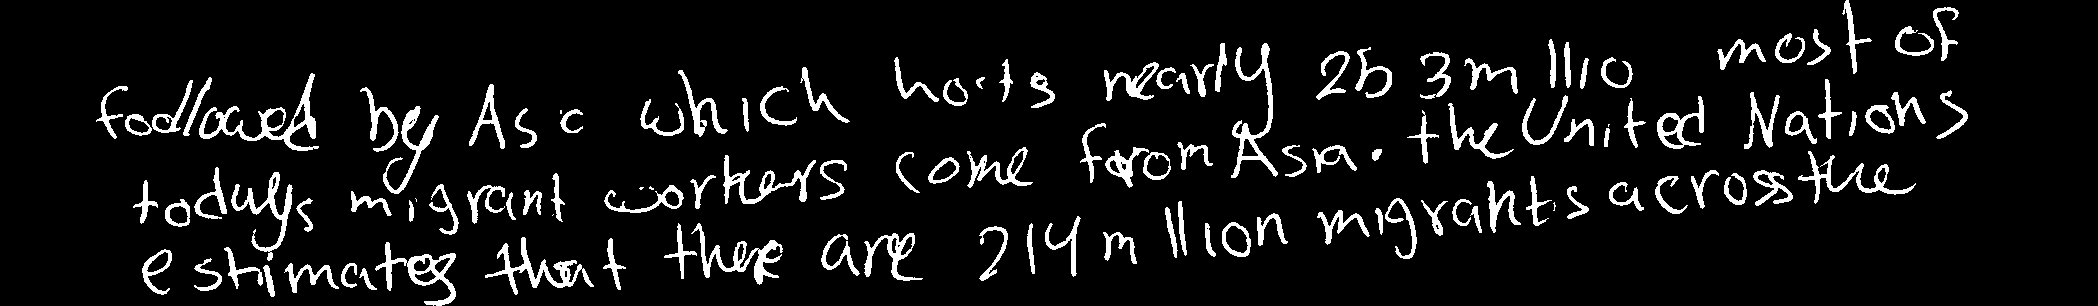 followed by Asc which hosts nearly 25 3 millio most of
toduys migrant workers come forom Asia. the United Nations
estimates that there are 214 million migrants across the